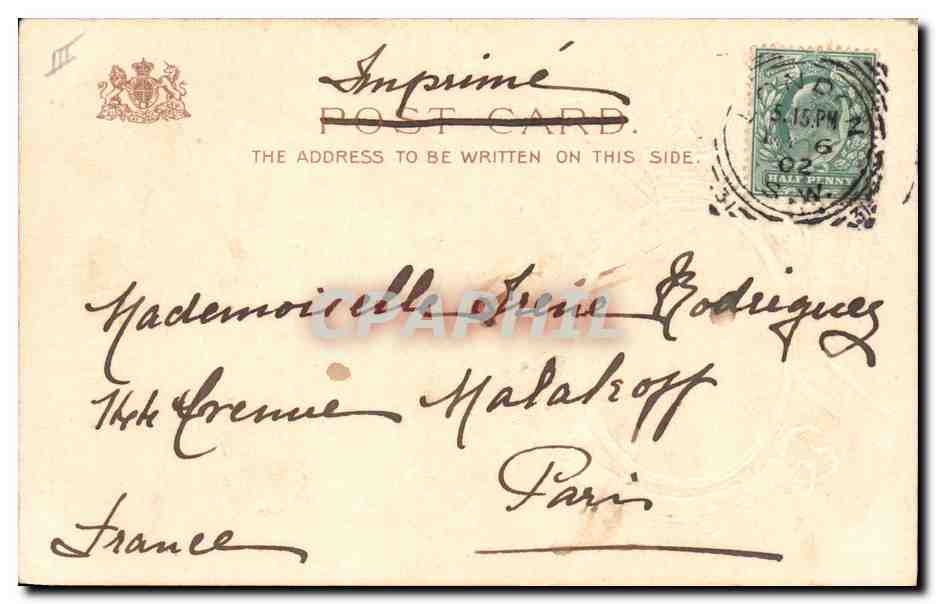 III
Imprimé
POST CARD.
THE ADDRESS TO BE WRITTEN ON THIS SIDE.
5.15.PM
6
02
S.W.
31 31
HALF PENNY
Mademoiselle Irène Rodriguez
144 Avenue Malakoff
Paris
France
CPAPHIL